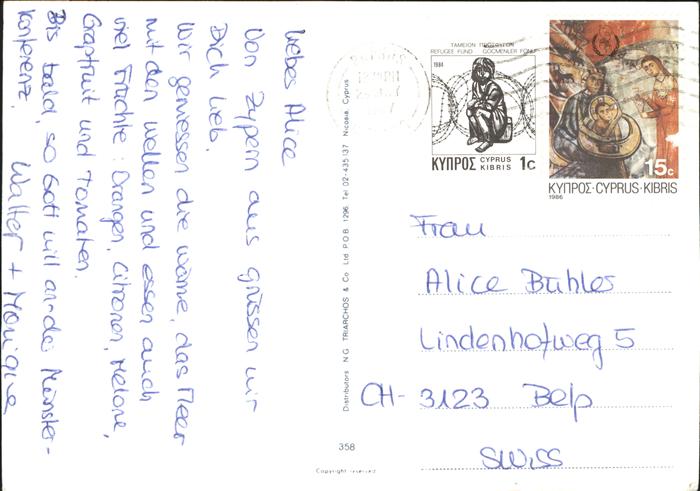 Liebes Alice
Von Zypern aus grüssen wir
Dich lieb.
Wir geniessen die Wärme, das Meer
mit den Wellen und essen auch
viel Früchte: Orangen, Citronen, Melone,
Grapfruit und Tomaten.
Bis bald, so Gott will an der Münster-
konferenz. Walter + Monique
Distributors N G TRIARCHOS & Co Ltd P.O.B. 1296 Tel 02-435137 Nicosia, Cyprus
358
Copyright reserved
ΤΑΜΕΙΟΝ ΠΡΟΣΦΥΓΩΝ
REFUGEE FUND GÖÇMENLER FONU
1984
ΚΥΠΡΟΣ CYPRUS KIBRIS 1c
15c
ΚΥΠΡΟΣ·CYPRUS·KIBRIS
1986
Frau
Alice Bühler
Lindenhofweg 5
CH- 3123 Belp
SWISS